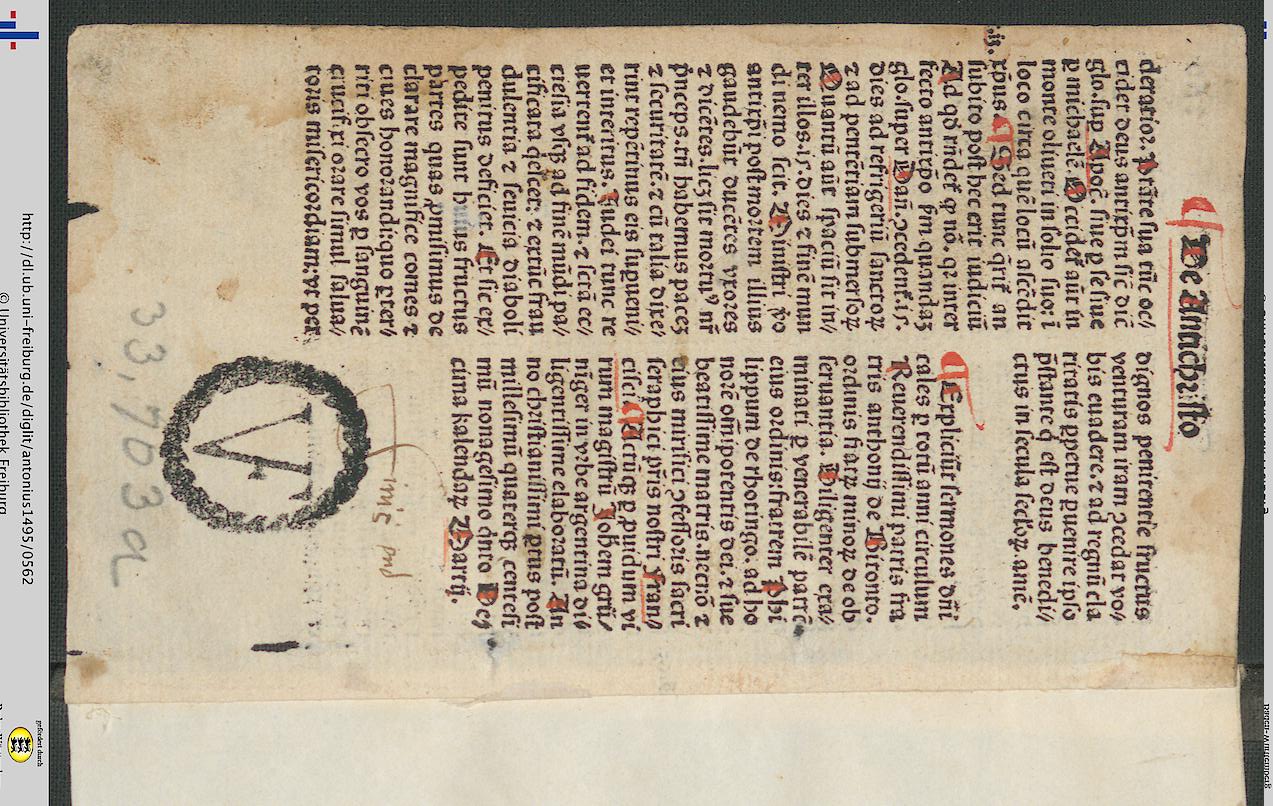 De Antichristo
cleratioꝫ. Ꝑstite sua tūc oc/
cidet deus antixp̄m sic dic̄
glo. suꝑ Apoc̄. siue ꝑ se siue
ꝑ michaelē. Occidet aūt in
monte oliueti in solio suo: ī
loco circa quē locū ascēdit
xp̄us. Sed tunc q̄rit an
subito post hec erit iudiciū
.iꝫ.
Ad qd̄ rn̄det̄ ꝙ nō. qꝛ inter
fecto anticpo
glo. super Dan̄. ꝯcedent̄.
dies ad refrigeriū sanctoꝝ
⁊ ad penitētiam submersoꝝ
Quantū aūt spaciū sit in/
ter illos. dies ⁊ finē mun
di nemo scit. Ministri ꝟo
anticp̄i post mortem illius
gaudebūt ducētes vxores
⁊ dicētes. licꝫ sit mortuꝰ nr̄
pn̄ceps. tn̄ habemus paceꝫ
⁊ securitatē: ⁊ cū talia dixe/
rint repētinus eis supueni/
et interitus. Iudei tunc re
uertent̄ ad fidem. ⁊ sctā ec/
clesia vsqꝫ ad finē mūdi pa/
cificata qescet: ⁊ extūc frau
dulentia ⁊ seuicia diaboli
penitus deficiet. Et sic ex/
pedite sunt huius fructus
partes quas ꝓmisimus de
clarare magnifice comes ⁊
ciues honorandi: quo ꝓter/
riti obsecro vos ꝑ sanguinē
crucifixi orare simul salua/
toris misericordiam: vt per
dignos penitentie fructus
venturam iram ꝯcedat vo/
bis euadere: ⁊ ad regnū cla
ritatis ꝑpetue ꝑuenire ipso
p̄stante q̄ est deus benedi/
ctus in secula seculoꝝ. amē.
Expliciūt sermones dn̄i
cales ꝑ totū anni circulum
Reuerendissimi patris fra
tris anthonij de Bitonto.
ordinis fratꝝ minoꝝ de ob
seruantia. Diligenter exa/
minati ꝑ venerabilē patrē
eius ordinis: fratrem Phi
lippum de rhotingo. ad ho
norē oīpotentis dei. ⁊ sue
beatissime matris. necnō ⁊
eius mirifici ꝯfessoris sacri
seraphici pr̄is nostri Fran/
cisci. Necūqꝫ ꝑ ꝓuidum vi
rum magistrū Johēm grü/
nīger in vrbe argentina di
ligentissime elaboratū. An
no christianissimi ptus post
millesimū quaterqꝫ centesi
mū nonagesimo q̄nto De/
cima kalendoꝝ Martij.
Finis
V
33,703a
http://dl.ub.uni-freiburg.de/diglit/antonius1495/0562
© Universitätsbibliothek Freiburg
gefördert durch